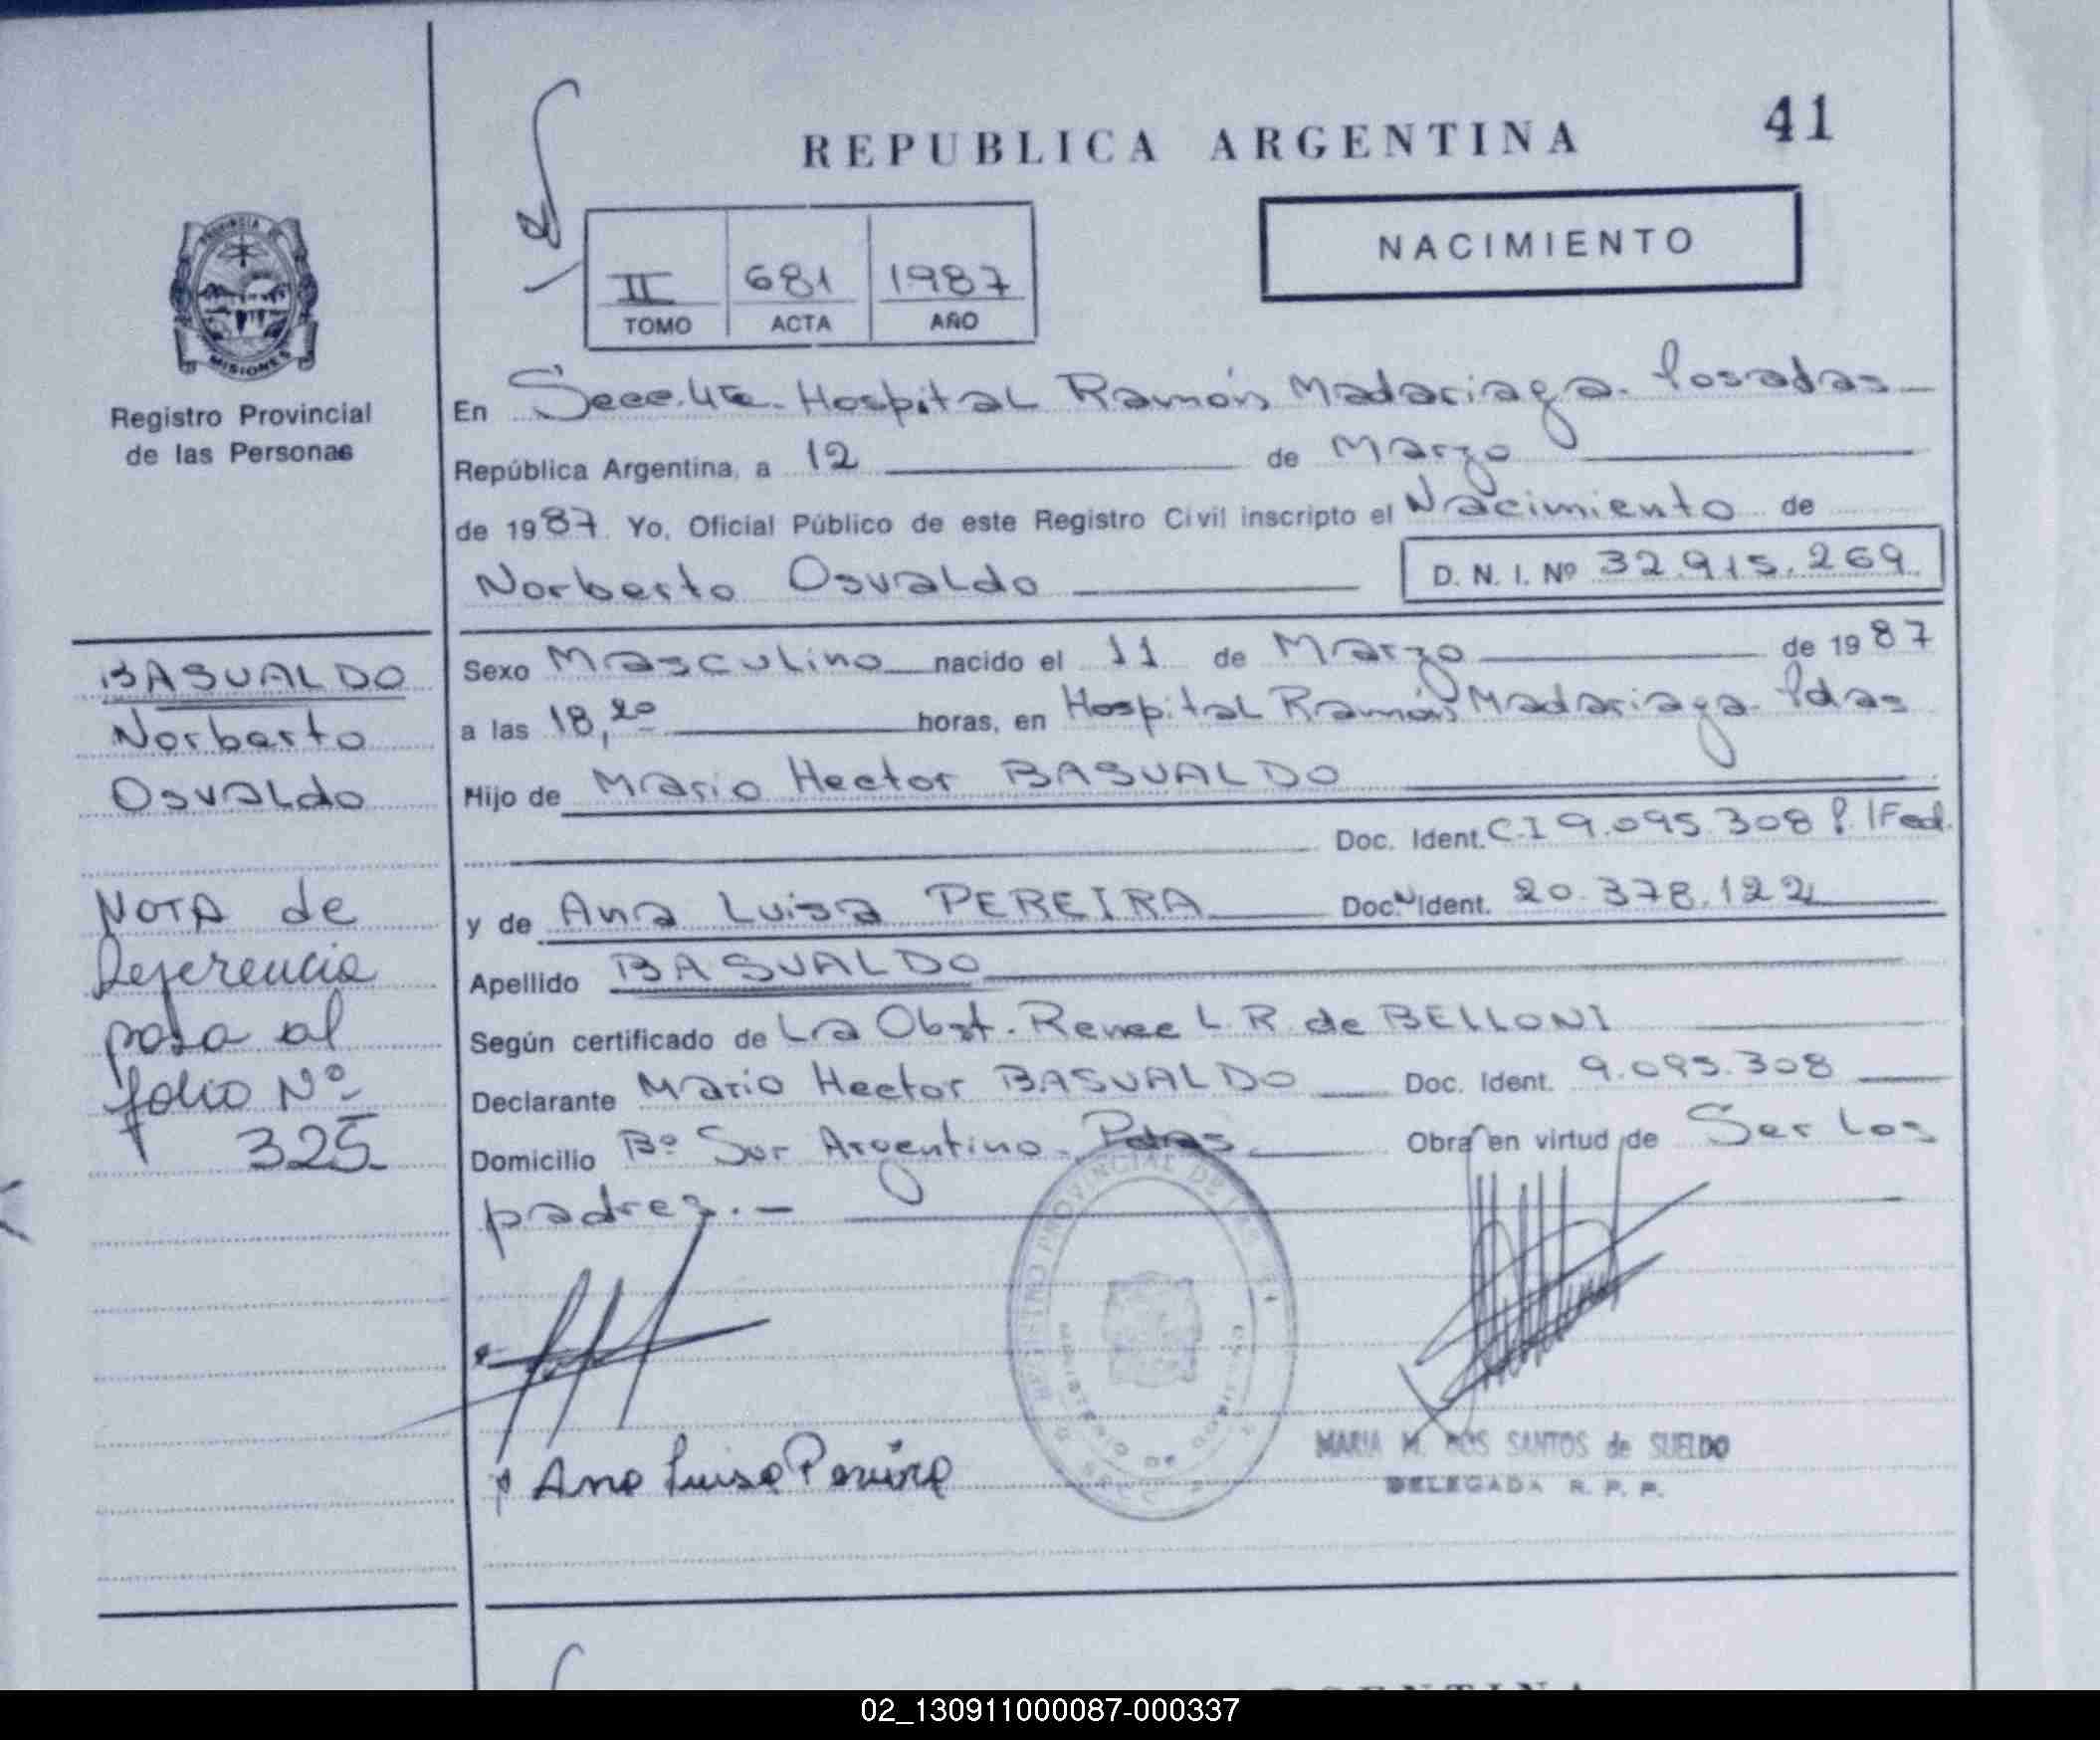 41
REPUBLICA ARGENTINA
NACIMIENTO
II 681 1987
TOMO ACTA AÑO
PROVINCIA DE
MISIONES
Registro Provincial
de las Personas
En Secc. 4ta. Hospital Ramón Madariaga. Posadas
República Argentina, a 12 de Marzo
de 1987. Yo, Oficial Público de este Registro Civil inscripto el Nacimiento de
Norberto Osvaldo D. N. I. Nº 32.915.269
Sexo Masculino nacido el 11 de Marzo de 1987
a las 18,20 horas, en Hospital Ramón Madariaga. Pdas
Hijo de Mario Hector BASUALDO
Doc. Ident. C.I 9.095.308 P. Fed.
y de Ana Luisa PEREIRA Doc. Ident. 20.378.122
Apellido BASUALDO
Según certificado de La Obst. Renee L. R. de BELLONI
Declarante Mario Hector BASUALDO Doc. Ident. 9.095.308
Domicilio Bº Sur Argentino. Pdas Obra en virtud de Ser los
padres.-
BASUALDO
Norberto
Osvaldo
NOTA de
Referencia
pasa al
folio Nº
325
Ana Luisa Pereira
REGISTRO PROVINCIAL DE LAS
MARIA M. DOS SANTOS de SUELDO
DELEGADA R. P. P.
02_130911000087-000337